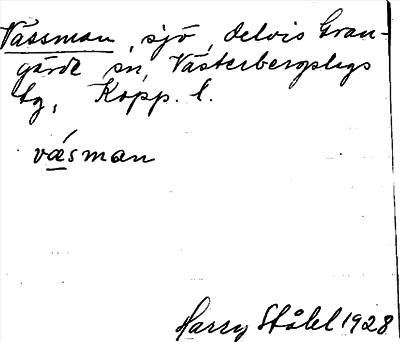 Vässman, sjö, delvis Gran-
gärde sn, Västerbergslags
tg, Kopp. l.
väsman
Harry Ståhl 1928